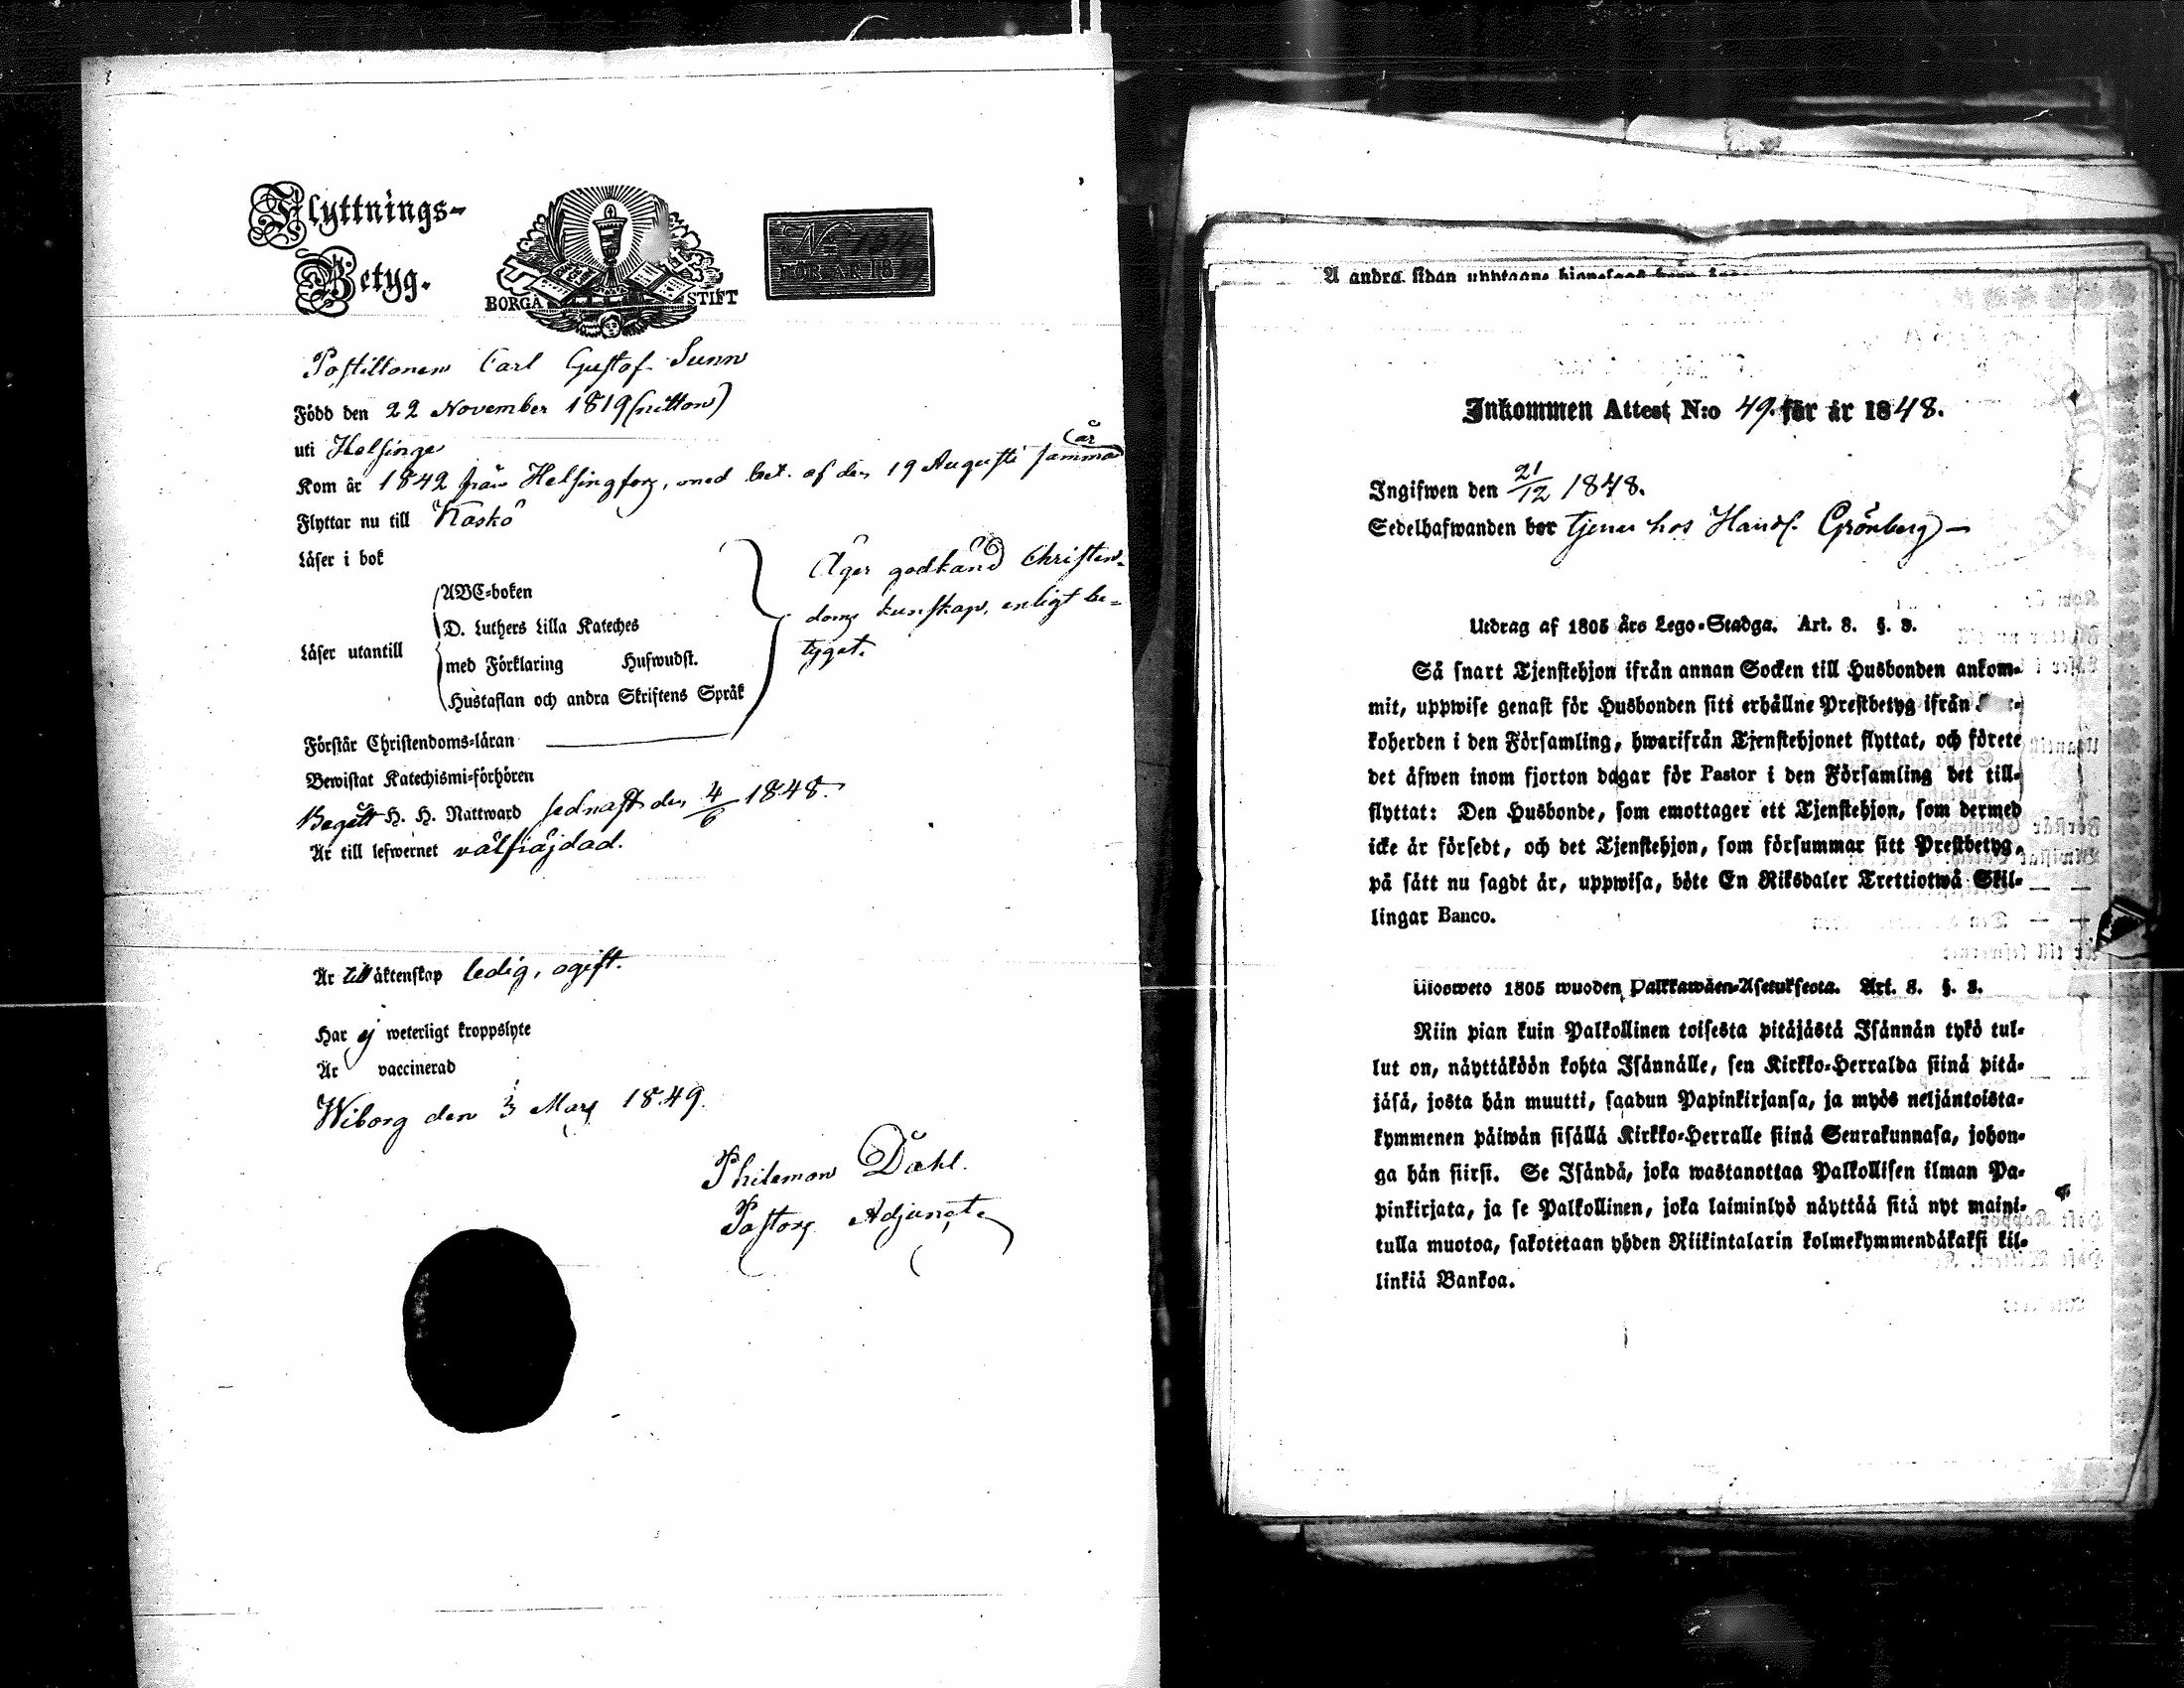 Flyttnings-
Betyg.
BORGÅ STIFT
FÖR ÅR 18
Postillonen Carl Gustaf Sunn
Född den 22 November 1819 (nitton)
uti Helsinge
Kom år 1842 från Helsingfors, med bet. af den 19 Augusti samma år
Flyttar nu till Kaskö
Läser i bok
Läser utantill
ABC-boken
D. Luthers Lilla Kateches
med Förklaring Hufwudst.
Hustaflan och andra Skriftens Språk
Äger godkänd Christen-
doms kunskap, enligt be-
tyget.
Förstår Christendoms-läran
Bewistat Katechismi-förhören
Begått H. H. Nattward sednast den 4/6 1848.
Är till lefwernet välfräjdad.
Är till äktenskap ledig, ogift.
Har ej weterligt kroppslyte
Är vaccinerad
Wiborg den 3 Mars 1849.
Philemon Dahl.
Pastors Adjunct.
Å andra sidan
Inkommen Attest N:o 49. för år 1848.
Ingifwen den 21/12 1848.
Sedelhafwanden bor tjener hos Handl. Grönberg —
Utdrag af 1805 års Lego-Stadga. Art. 8. §. 3.
Så snart Tjenstehjon ifrån annan Socken till Husbonden ankom-
mit, uppwise genast för Husbonden sitt erhållne Prestbetyg ifrån
koherden i den Församling, hwarifrån Tjenstehjonet flyttat, och förete
det äfwen inom fjorton dagar för Pastor i den Församling det till-
flyttat: Den Husbonde, som emottager ett Tjenstehjon, som dermed
icke är försedt, och det Tjenstehjon, som försummar sitt Prestbetyg,
på sätt nu sagdt är, uppwisa, böte En Riksdaler Trettiotwå Skil-
lingar Banco.
Ulosweto 1805 wuoden Palkkawäen-Asetuksesta. Art. 8. §. 3.
Niin pian kuin Palkollinen toisesta pitäjästä Isännän tykö tul-
lut on, näyttäköön kohta Isännälle, sen Kirkko-Herralda siinä pitä-
jäsä, josta hän muutti, saadun Papinkirjansa, ja myös neljäntoista-
kymmenen päiwän sisällä Kirkko-Herralle siinä Seurakunnasa, johon-
ga hän siirsi. Se Isändä, joka wastanottaa Palkollisen ilman Pa-
pinkirjata, ja se Palkollinen, joka laiminlyö näyttää sitä nyt maini-
tulla muotoa, sakotetaan yhden Riikintalarin kolmekymmendäkaksi kil-
linkiä Bankoa.